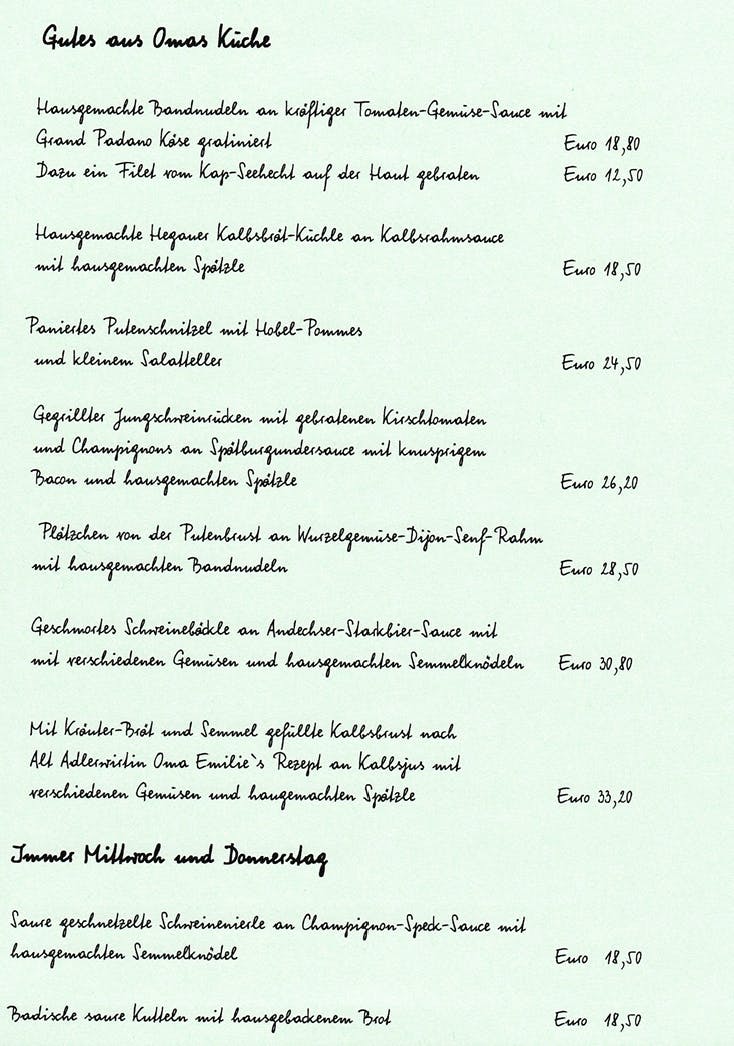 Gutes aus Omas Küche
Hausgemachte Bandnudeln an kräftiger Tomaten-Gemüse-Sauce mit
Grand Padano Käse gratiniert Euro 18,80
Dazu ein Filet vom Kap-Seehecht auf der Haut gebraten Euro 12,50
Hausgemachte Hegauer Kalbsbrät-Küchle an Kalbsrahmsauce
mit hausgemachten Spätzle Euro 18,50
Paniertes Putenschnitzel mit Hobel-Pommes
und kleinem Salatteller Euro 24,50
Gegrillter Jungschweinrücken mit gebratenen Kirschtomaten
und Champignons an Spätburgundersauce mit knusprigem
Bacon und hausgemachten Spätzle Euro 26,20
Plätzchen von der Putenbrust an Wurzelgemüse-Dijon-Senf-Rahm
mit hausgemachten Bandnudeln Euro 28,50
Geschmortes Schweinebäckle an Andechser-Starkbier-Sauce mit
mit verschiedenen Gemüsen und hausgemachten Semmelknödeln Euro 30,80
Mit Kräuter-Brät und Semmel gefüllte Kalbsbrust nach
Alt Adlerwirtin Oma Emilie`s Rezept an Kalbsjus mit
verschiedenen Gemüsen und haugemachten Spätzle Euro 33,20
Immer Mittwoch und Donnerstag
Saure geschnetzelte Schweinenierle an Champignon-Speck-Sauce mit
hausgemachten Semmelknödel Euro 18,50
Badische saure Kutteln mit hausgebackenem Brot Euro 18,50